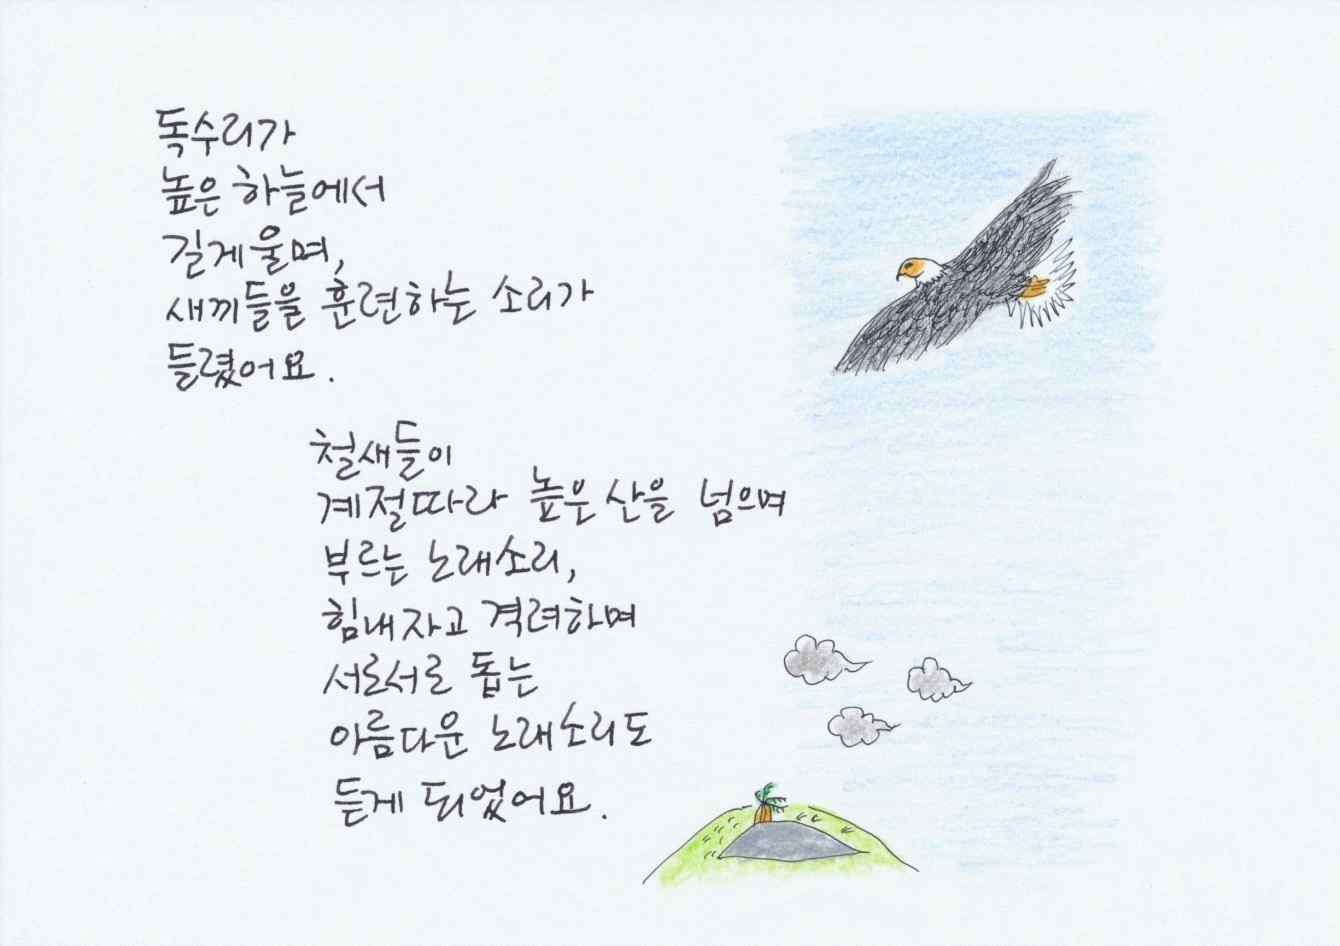 독수리가
높은 하늘에서
길게 울며,
새끼들을 훈련하는 소리가
들렸어요.
철새들이
계절따라 높은 산을 넘으며
부르는 노래소리,
힘내자고 격려하며
서로서로 돕는
아름다운 노래소리도
듣게 되었어요.